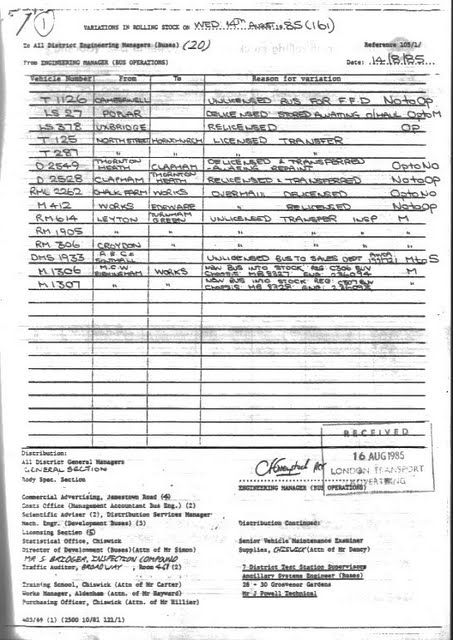 VARIATIONS IN ROLLING STOCK ON WED 14TH AUGUST 1985 (161)
To All District Engineering Managers (Buses) (20) Reference 103/1/
From ENGINEERING MANAGER (BUS OPERATIONS) Date: 14/8/85.
Vehicle Number From To Reason for variation
T 1126 CAMBERWELL UNLICENSED BUS FOR F.F.D No to Op
LS 27 POPLAR DELICENSED STORED AWAITING O/HAUL Op to M
LS 378 UXBRIDGE RELICENSED OP
T 125 NORTH STREET HORNCHURCH LICENSED TRANSFER
T 287 " " " "
D 2549 THORNTON HEATH CLAPHAM DELICENSED & TRANSFERRED - AWAITING REPAINT Op to No
D 2528 CLAPHAM THORNTON HEATH RELICENSED & TRANSFERRED No to Op
RML 2262 CHALK FARM WORKS OVERHAUL DELICENSED Op to No
M 412 WORKS EDGWARE " RELICENSED No to Op
RM 614 LEYTON TURNHAM GREEN UNLICENSED TRANSFER INSP M
RM 1905 " " " "
RM 306 CROYDON " " "
DMS 1933 A.E.C. SOUTHALL UNLICENSED BUS TO SALES DEPT M to S
M 1306 M.C.W. BIRMINGHAM WORKS NEW BUS INTO STOCK REG C306 BUV CHASSIS MB 8327 ENG: M
M 1307 " " NEW BUS INTO STOCK REG: C307 BUV CHASSIS MB 8328 ENG: "
Distribution:
All District General Managers
GENERAL SECTION
Body Spec. Section
RECEIVED
16 AUG 1985
LONDON TRANSPORT
ADVERTISING
ENGINEERING MANAGER (BUS OPERATIONS)
Commercial Advertising, Jamestown Road (4)
Costs Office (Management Accountant Bus Eng.) (2)
Scientific Adviser (2), Distribution Services Manager
Mech. Engr. (Development Buses) (5)
Licensing Section (5)
Statistical Office, Chiswick
Director of Development (Buses)(Attn of Mr Simon)
INSPECTION COMPOUND
Traffic Auditor, BROADWAY, Room
Training School, Chiswick (Attn of Mr Carter)
Works Manager, Aldenham (Attn. of Mr Hayward)
Purchasing Officer, Chiswick (Attn of Mr Hillier)
Distribution Continued:
Senior Vehicle Maintenance Examiner
Supplies, CHISWICK (Attn of Mr Dancy)
7 District Test Station Supervisors
Ancillary Systems Engineer (Buses)
28 - 30 Grosvenor Gardens
Mr J Powell Technical
403/69 (1) (2500 10/81 121/1)